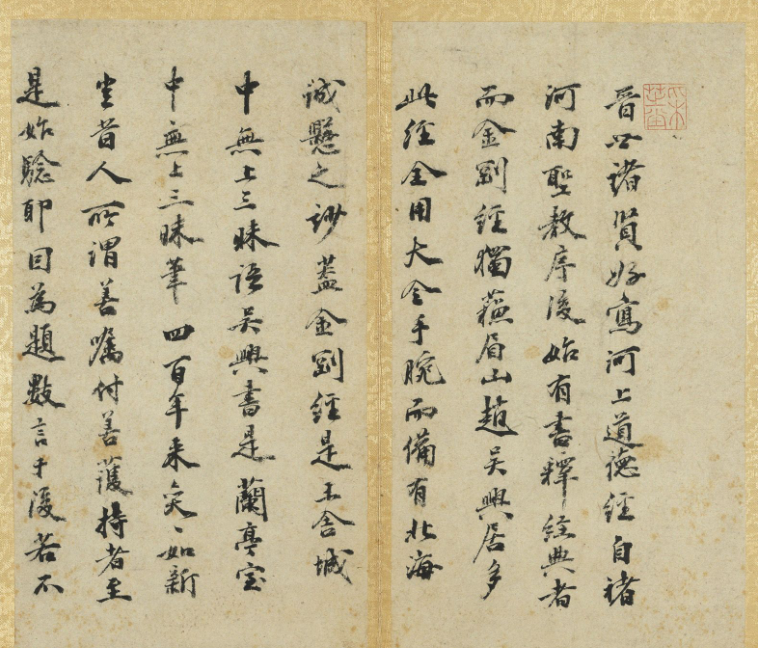 晉世諸賢好寫河上道德經自褚
河南聖教序後始有書釋經典者
而金剛經獨蘇眉山趙吳興居多
此經全用大令手腕而備有北海
誠懸之妙蓋金剛經是王舍城
中無上三昧語吳興書是蘭亭室
中無上三昧筆四百年來奕〻如新
豈昔人所謂善囑付善護持者至
是始驗耶因為題數言于後若不